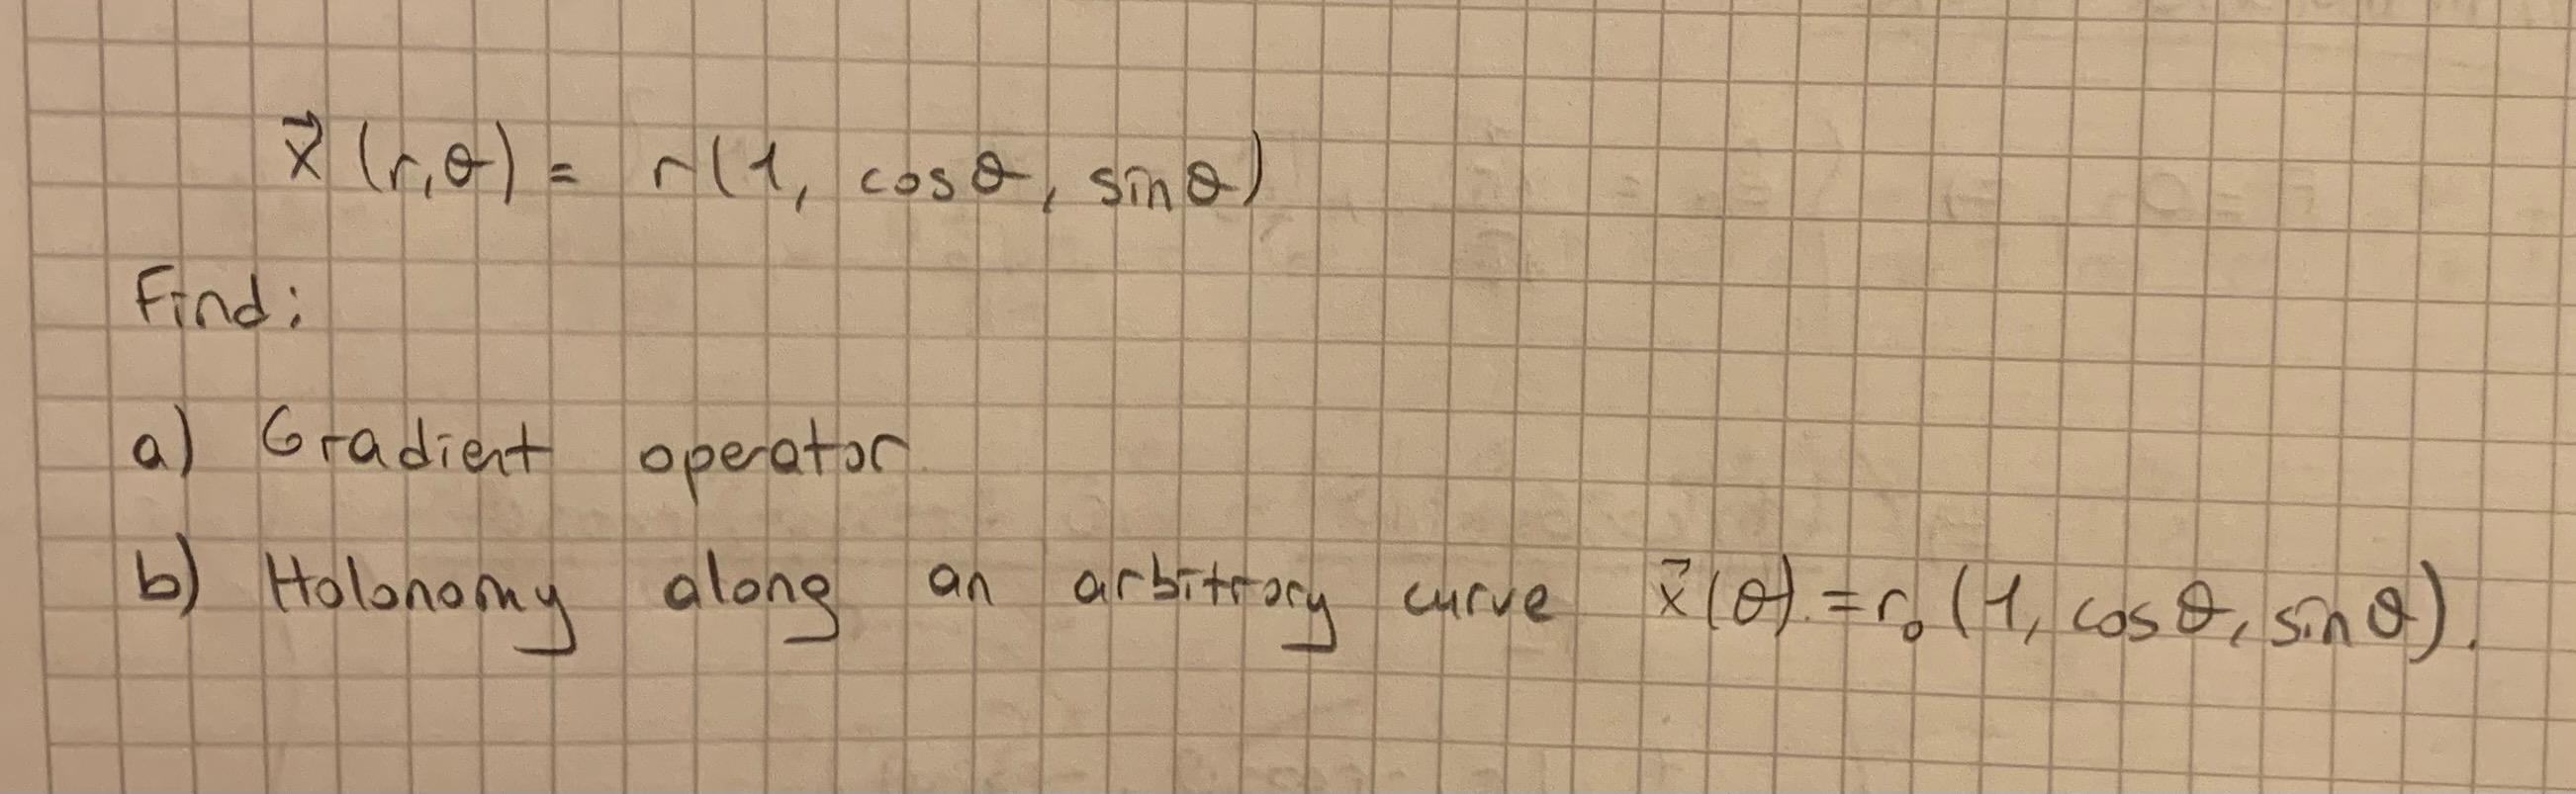 x⃗ (r,θ) = r(1, cosθ, sinθ)
Find:
a) Gradient operator
b) Holonomy along an arbitrary curve x⃗(θ) = r₀ (1, cosθ, sinθ).